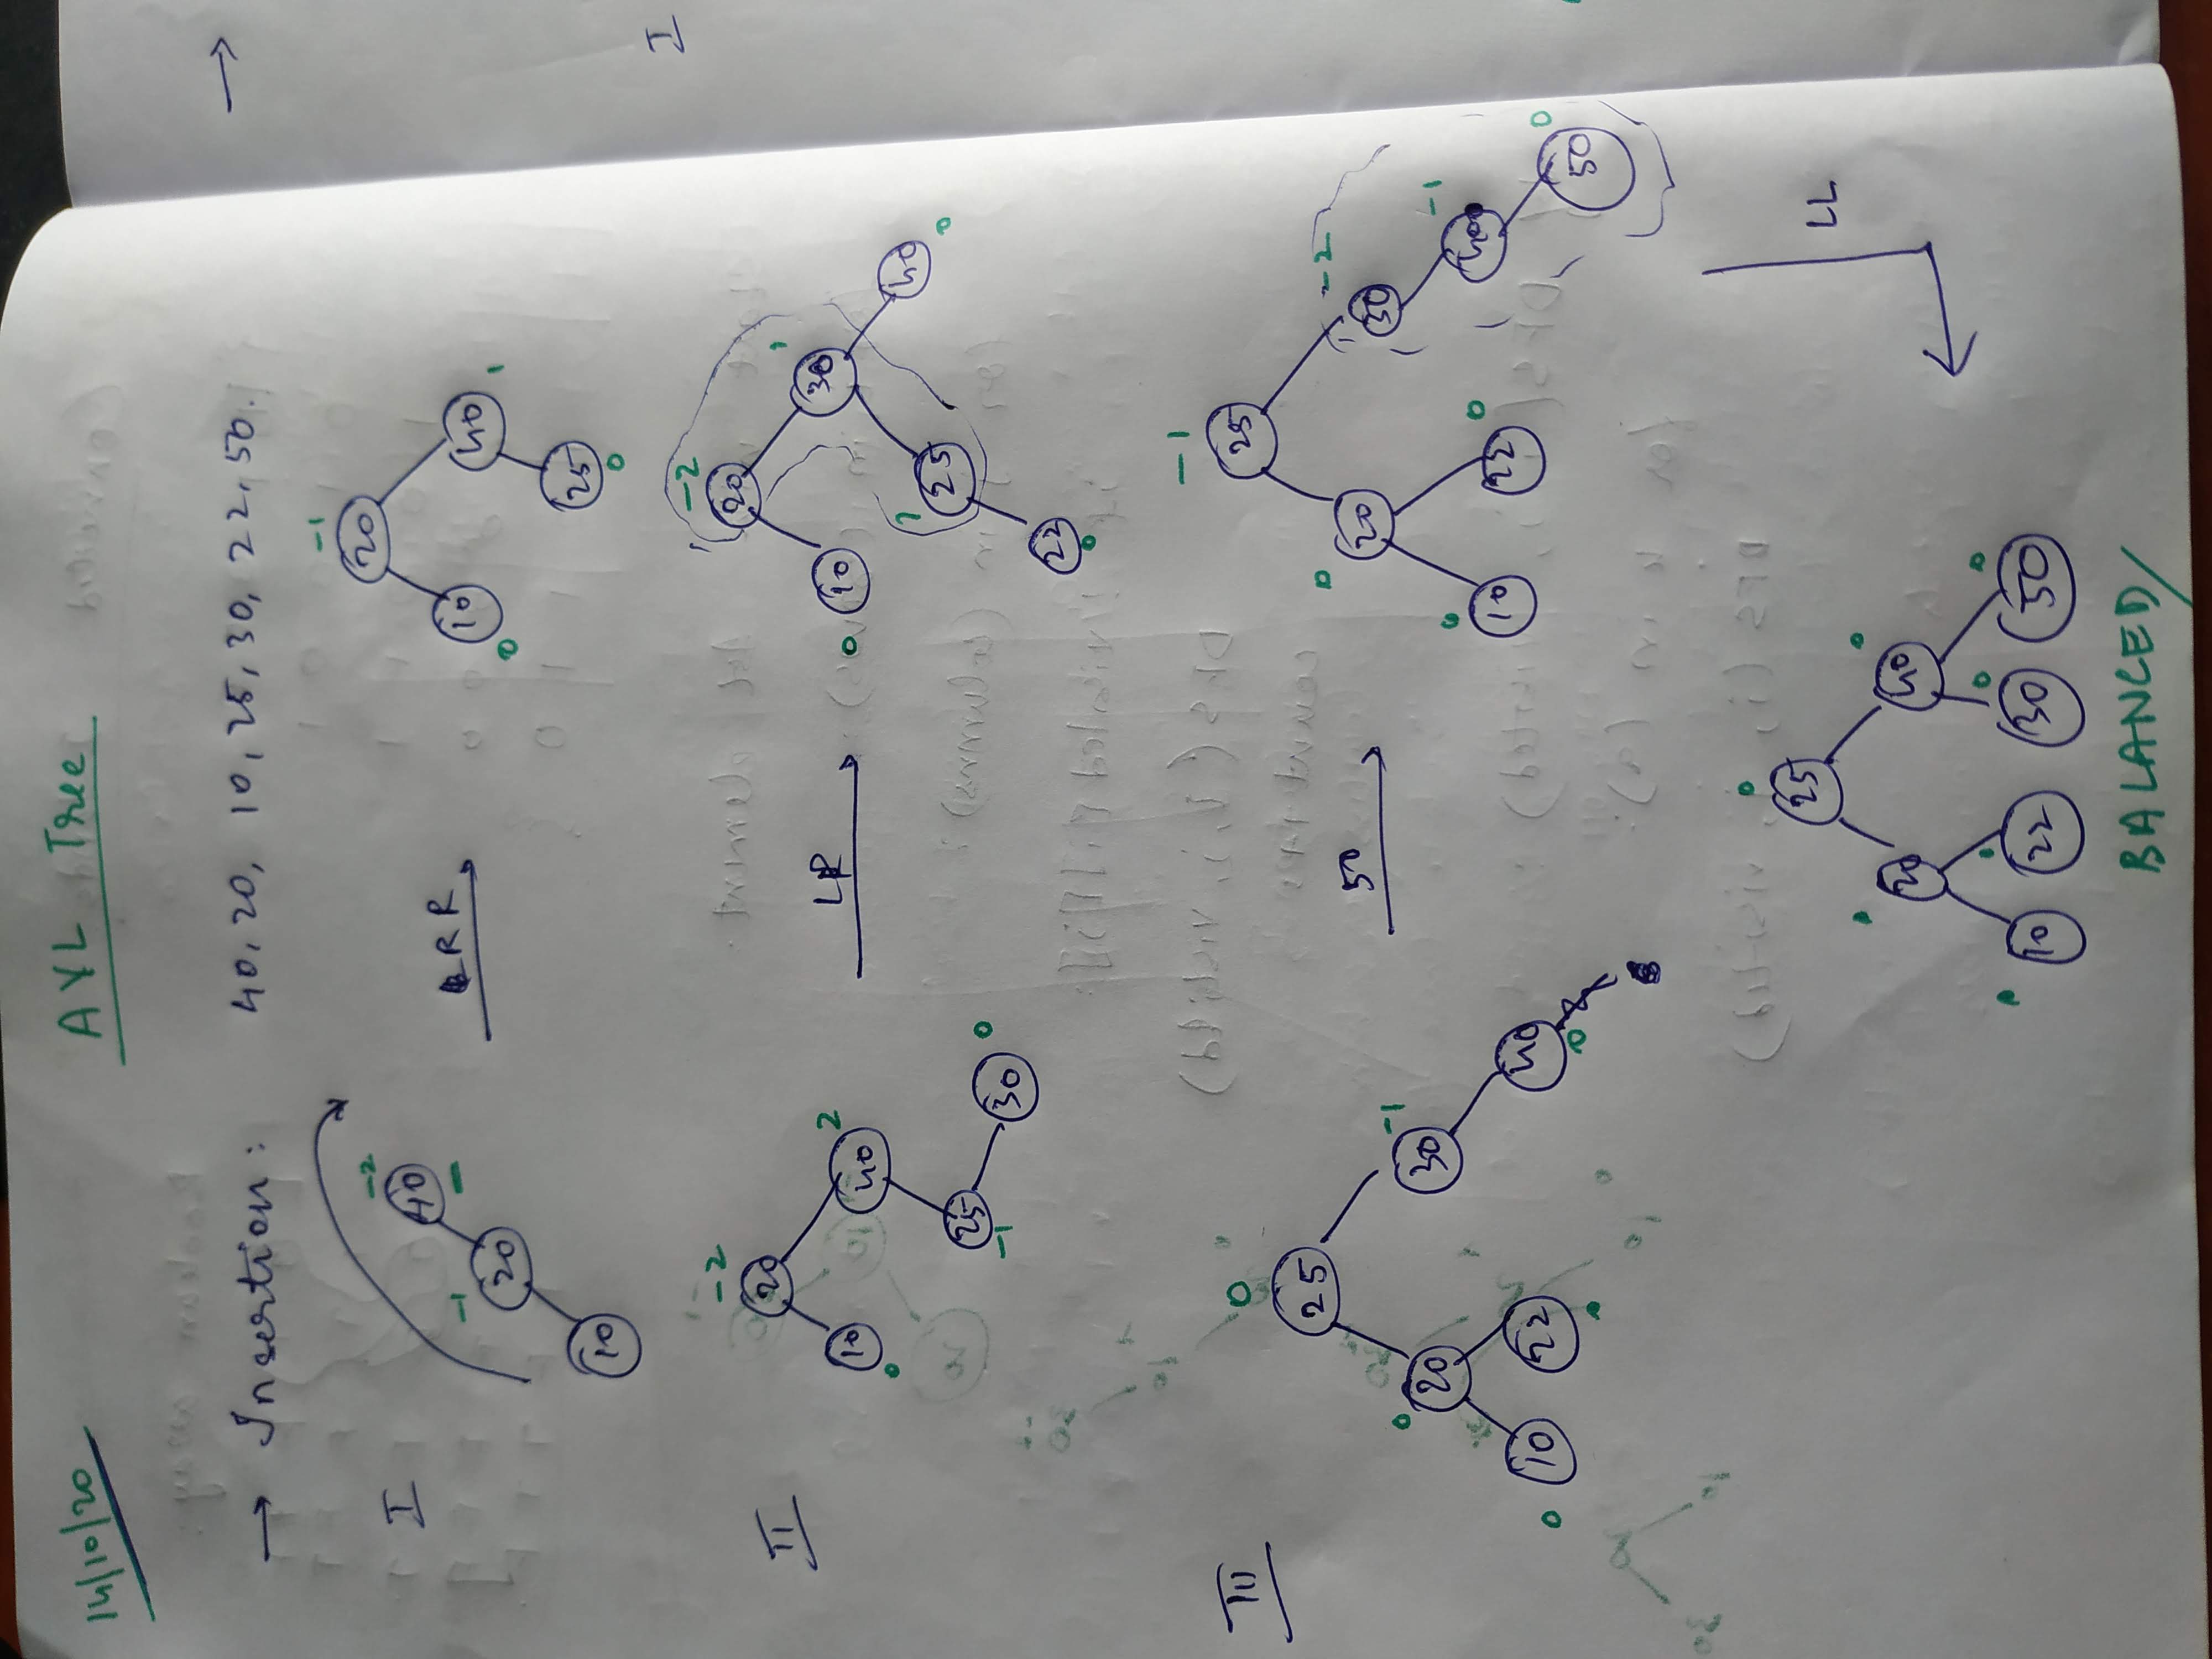 14/10/20
AVL Tree
→ Insertion: 40, 20, 10, 25, 30, 22, 50.
→
I
-2
40
-1
20
10
RR
-1
20
10
0
40
1
25
0
I
II
-2
20
10
0
40
2
25
-1
30
0
LR
-2
20
10
0
30
1
25
1
40
0
22
0
III
0
25
0
20
30
-1
0
10
22
0
40
0
50
-1
25
0
20
30
-2
0
10
22
0
40
-1
50
0
LL
0
25
0
20
40
0
0
10
22
0
30
0
50
0
BALANCED/